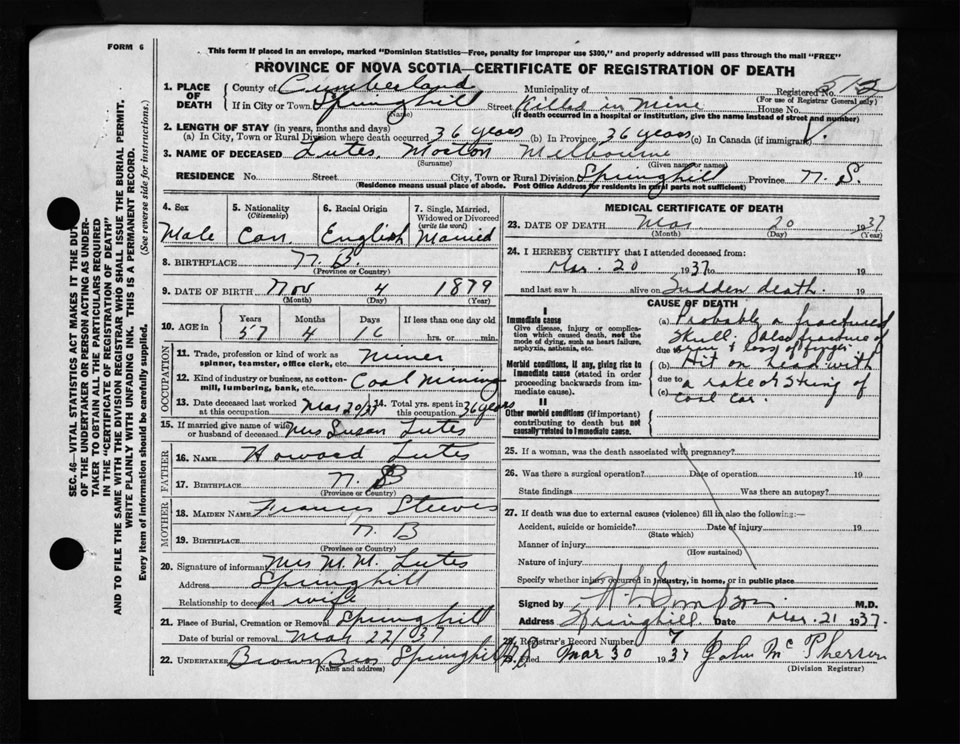 FORM 6
This form if placed in an envelope, marked "Dominion Statistics—Free, penalty for improper use $300," and properly addressed will pass through the mail "FREE"
PROVINCE OF NOVA SCOTIA—CERTIFICATE OF REGISTRATION OF DEATH
SEC. 46—VITAL STATISTICS ACT MAKES IT THE DUTY
OF THE UNDERTAKER OR PERSON ACTING AS UNDER-
TAKER TO OBTAIN ALL THE PARTICULARS REQUIRED
IN THE "CERTIFICATE OF REGISTRATION OF DEATH"
AND TO FILE THE SAME WITH THE DIVISION REGISTRAR WHO SHALL ISSUE THE BURIAL PERMIT.
WRITE PLAINLY WITH UNFADING INK. THIS IS A PERMANENT RECORD.
Every item of information should be carefully supplied. (See reverse side for instructions.)
1. PLACE OF DEATH County of Cumberland Municipality of Registered No. 512
(For use of Registrar General only)
If in City or Town Springhill Street Killed in Mine House No.
(Name) (If death occurred in a hospital or institution, give the name instead of street and number)
2. LENGTH OF STAY (in years, months and days)
(a) In City, Town or Rural Division where death occurred 36 years (b) In Province 36 years (c) In Canada (if immigrant)
3. NAME OF DECEASED Lutes, Morton Melbourne
(Surname) (Given name or names)
RESIDENCE No. Street City, Town or Rural Division Springhill Province N. S.
(Residence means usual place of abode. Post Office Address for residents in rural parts not sufficient)
4. Sex 5. Nationality (Citizenship) 6. Racial Origin 7. Single, Married, Widowed or Divorced (write the word)
Male Can. English Married
8. BIRTHPLACE N. B.
(Province or Country)
9. DATE OF BIRTH Nov 4 1879
(Month) (Day) (Year)
10. AGE in Years Months Days If less than one day old
57 4 16 hrs. or min.
OCCUPATION
11. Trade, profession or kind of work as spinner, teamster, office clerk, etc. miner
12. Kind of industry or business, as cotton-mill, lumbering, bank, etc. Coal Mining
13. Date deceased last worked at this occupation Mar 20/37 14. Total yrs. spent in this occupation 36 years
15. If married give name of wife or husband of deceased Mrs Susan Lutes
FATHER
16. NAME Howard Lutes
17. BIRTHPLACE N. B
(Province or Country)
MOTHER
18. MAIDEN NAME Francis Steeves
19. BIRTHPLACE N. B
(Province or Country)
20. Signature of informant Mrs M. M. Lutes
Address Springhill
Relationship to deceased wife
21. Place of Burial, Cremation or Removal Springhill
Date of burial or removal Mar 22/37
22. UNDERTAKER Brown Bros Springhill
(Name and address)
MEDICAL CERTIFICATE OF DEATH
23. DATE OF DEATH Mar 20 1937
(Month) (Day) (Year)
24. I HEREBY CERTIFY that I attended deceased from:
Mar. 20 1937 to 19
and last saw h alive on Sudden death. 19
CAUSE OF DEATH
I
Immediate cause
Give disease, injury or complication which caused death, not the mode of dying, such as heart failure, asphyxia, asthenia, etc.
(a) Probably a fractured
Skull; also fracture of
due to arm & loss of finger.
Morbid conditions, if any, giving rise to immediate cause (stated in order proceeding backwards from immediate cause).
(b) Hit on head with
due to a rake or string of
(c) coal car.
II
Other morbid conditions (if important) contributing to death but not causally related to immediate cause.
25. If a woman, was the death associated with pregnancy?
26. Was there a surgical operation? Date of operation 19
State findings Was there an autopsy?
27. If death was due to external causes (violence) fill in also the following:—
Accident, suicide or homicide? Date of injury 19
(State which)
Manner of injury
(How sustained)
Nature of injury
Specify whether injury occurred in industry, in home, or in public place
Signed by Simpson M.D.
Address Springhill Date Mar. 21 1937.
28. Registrar's Record Number 7
29. Filed Mar 30 1937 John McPherson
(Division Registrar)